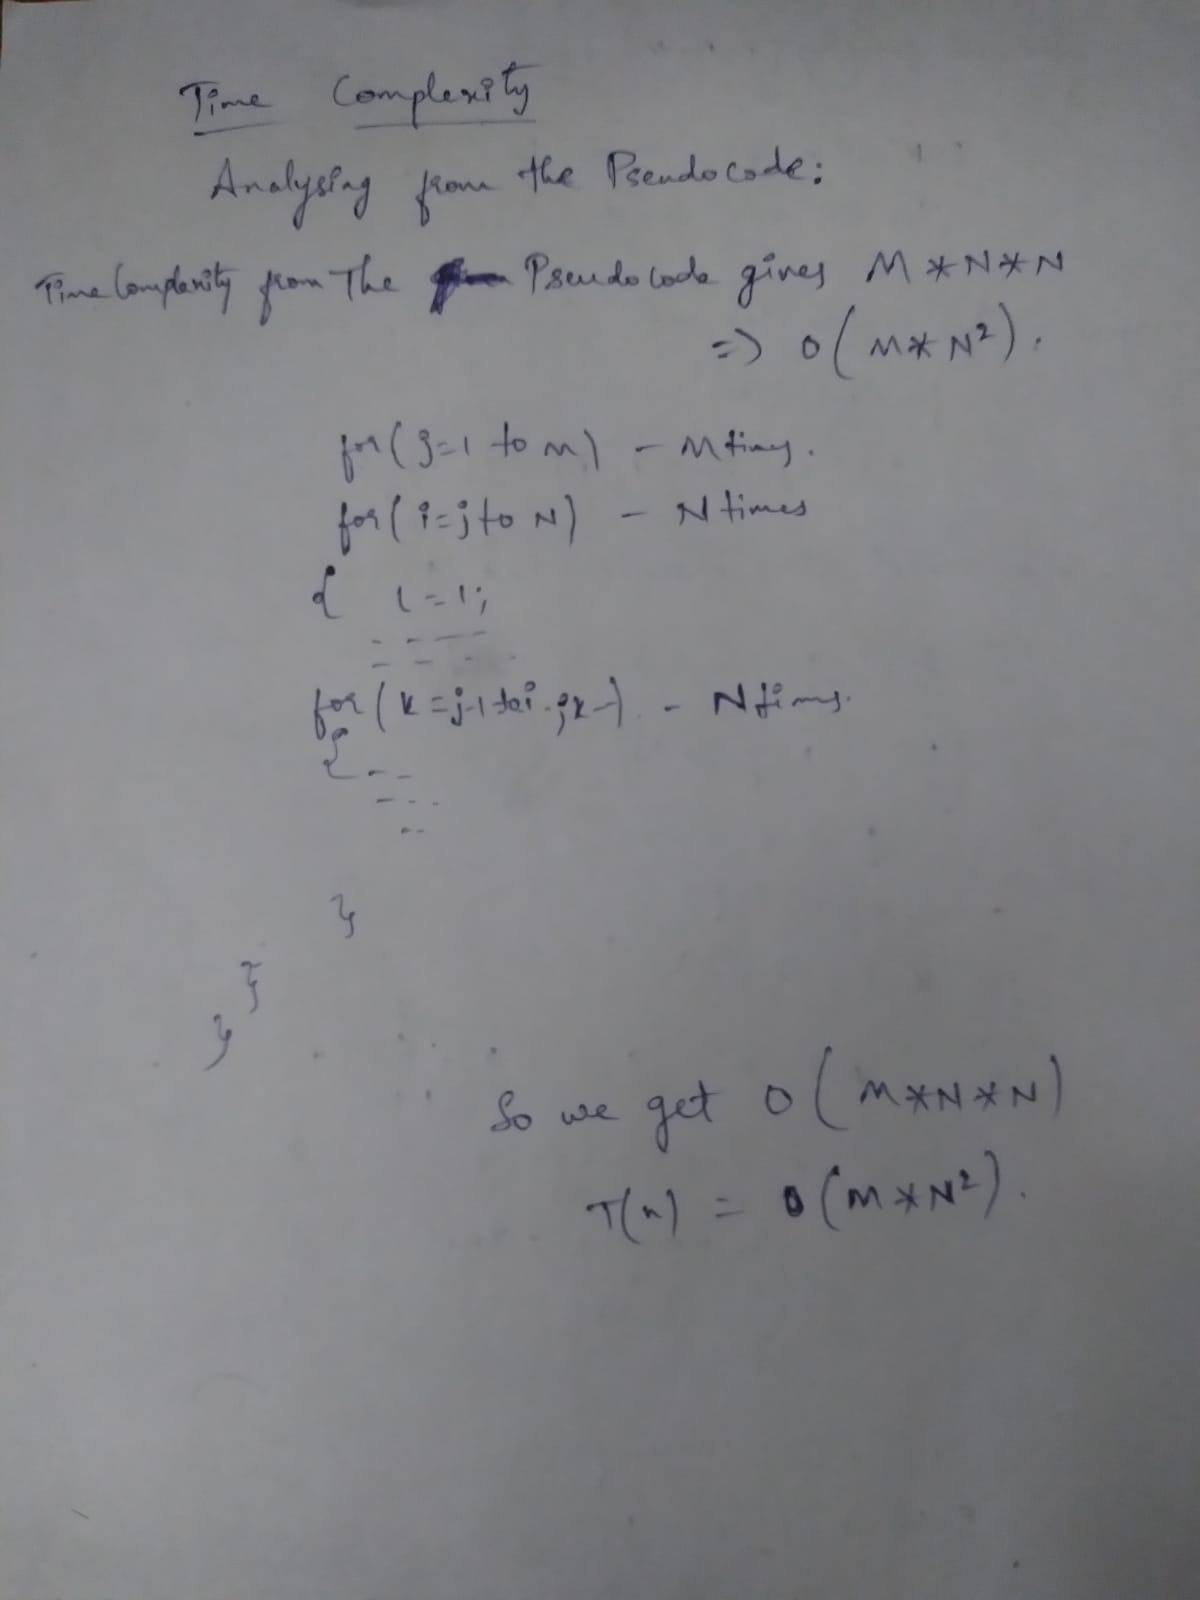 Time Complexity
Analysing from the Pseudocode:
Time Complexity from The Pseudocode gives M*N*N
=> O(M*N²).
for(j=1 to m) - M times.
for(i=j to N) - N times
{ l=1;
for(k=j-1 to i.;k-) - N times.
{
}
}
}
So we get O(M*N*N)
T(n) = O(M*N²).